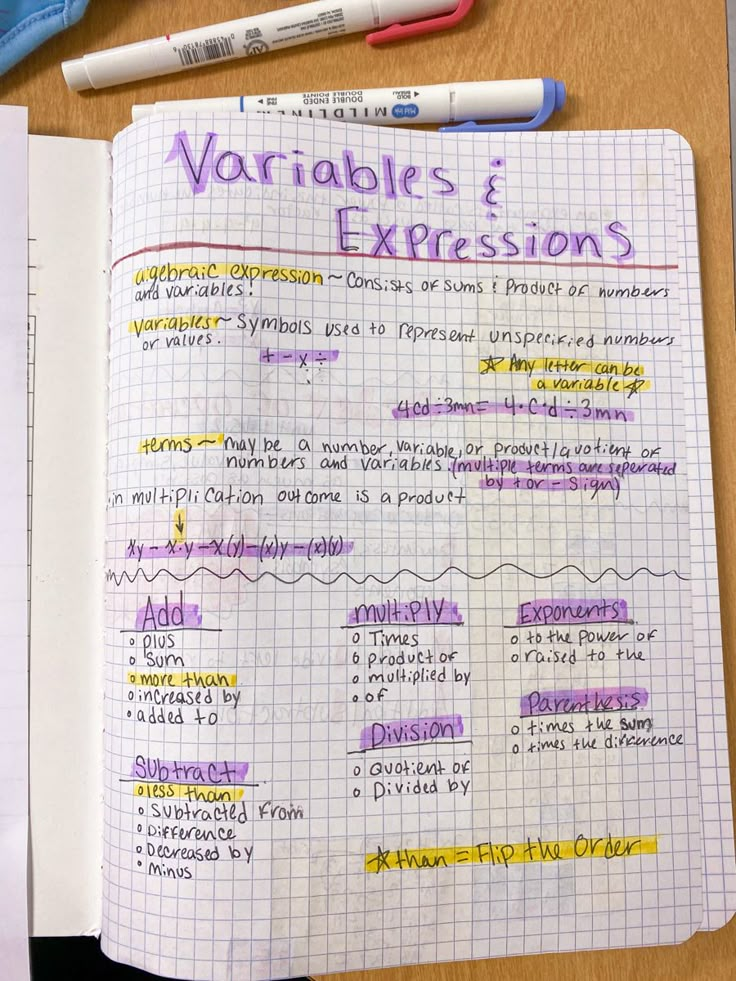 MILDLINER
DOUBLE ENDED
DOUBLE POINTE
BOLD
FINE
Variables &
Expressions
algebraic expression ~ Consists of sums & product of numbers
and variables!
Variables ~ Symbols used to represent unspecified numbers
or values.
+ - x ÷
☆ Any letter can be
a variable ☆
4cd÷3mn= 4·c·d÷3mn
terms ~ may be a number, variable, or product/quotient of
numbers and variables. (multiple terms are seperated
by + or - sign)
in multiplication outcome is a product
↓
xy - x·y - x(y) - (x)y - (x)(y)
Add
plus
sum
more than
increased by
added to
Subtract
less than
subtracted from
Difference
Decreased by
minus
multiply
Times
product of
multiplied by
of
Division
Quotient of
Divided by
Exponents
to the power of
raised to the
Parenthesis
times the sum
times the difference
☆ than = Flip the Order